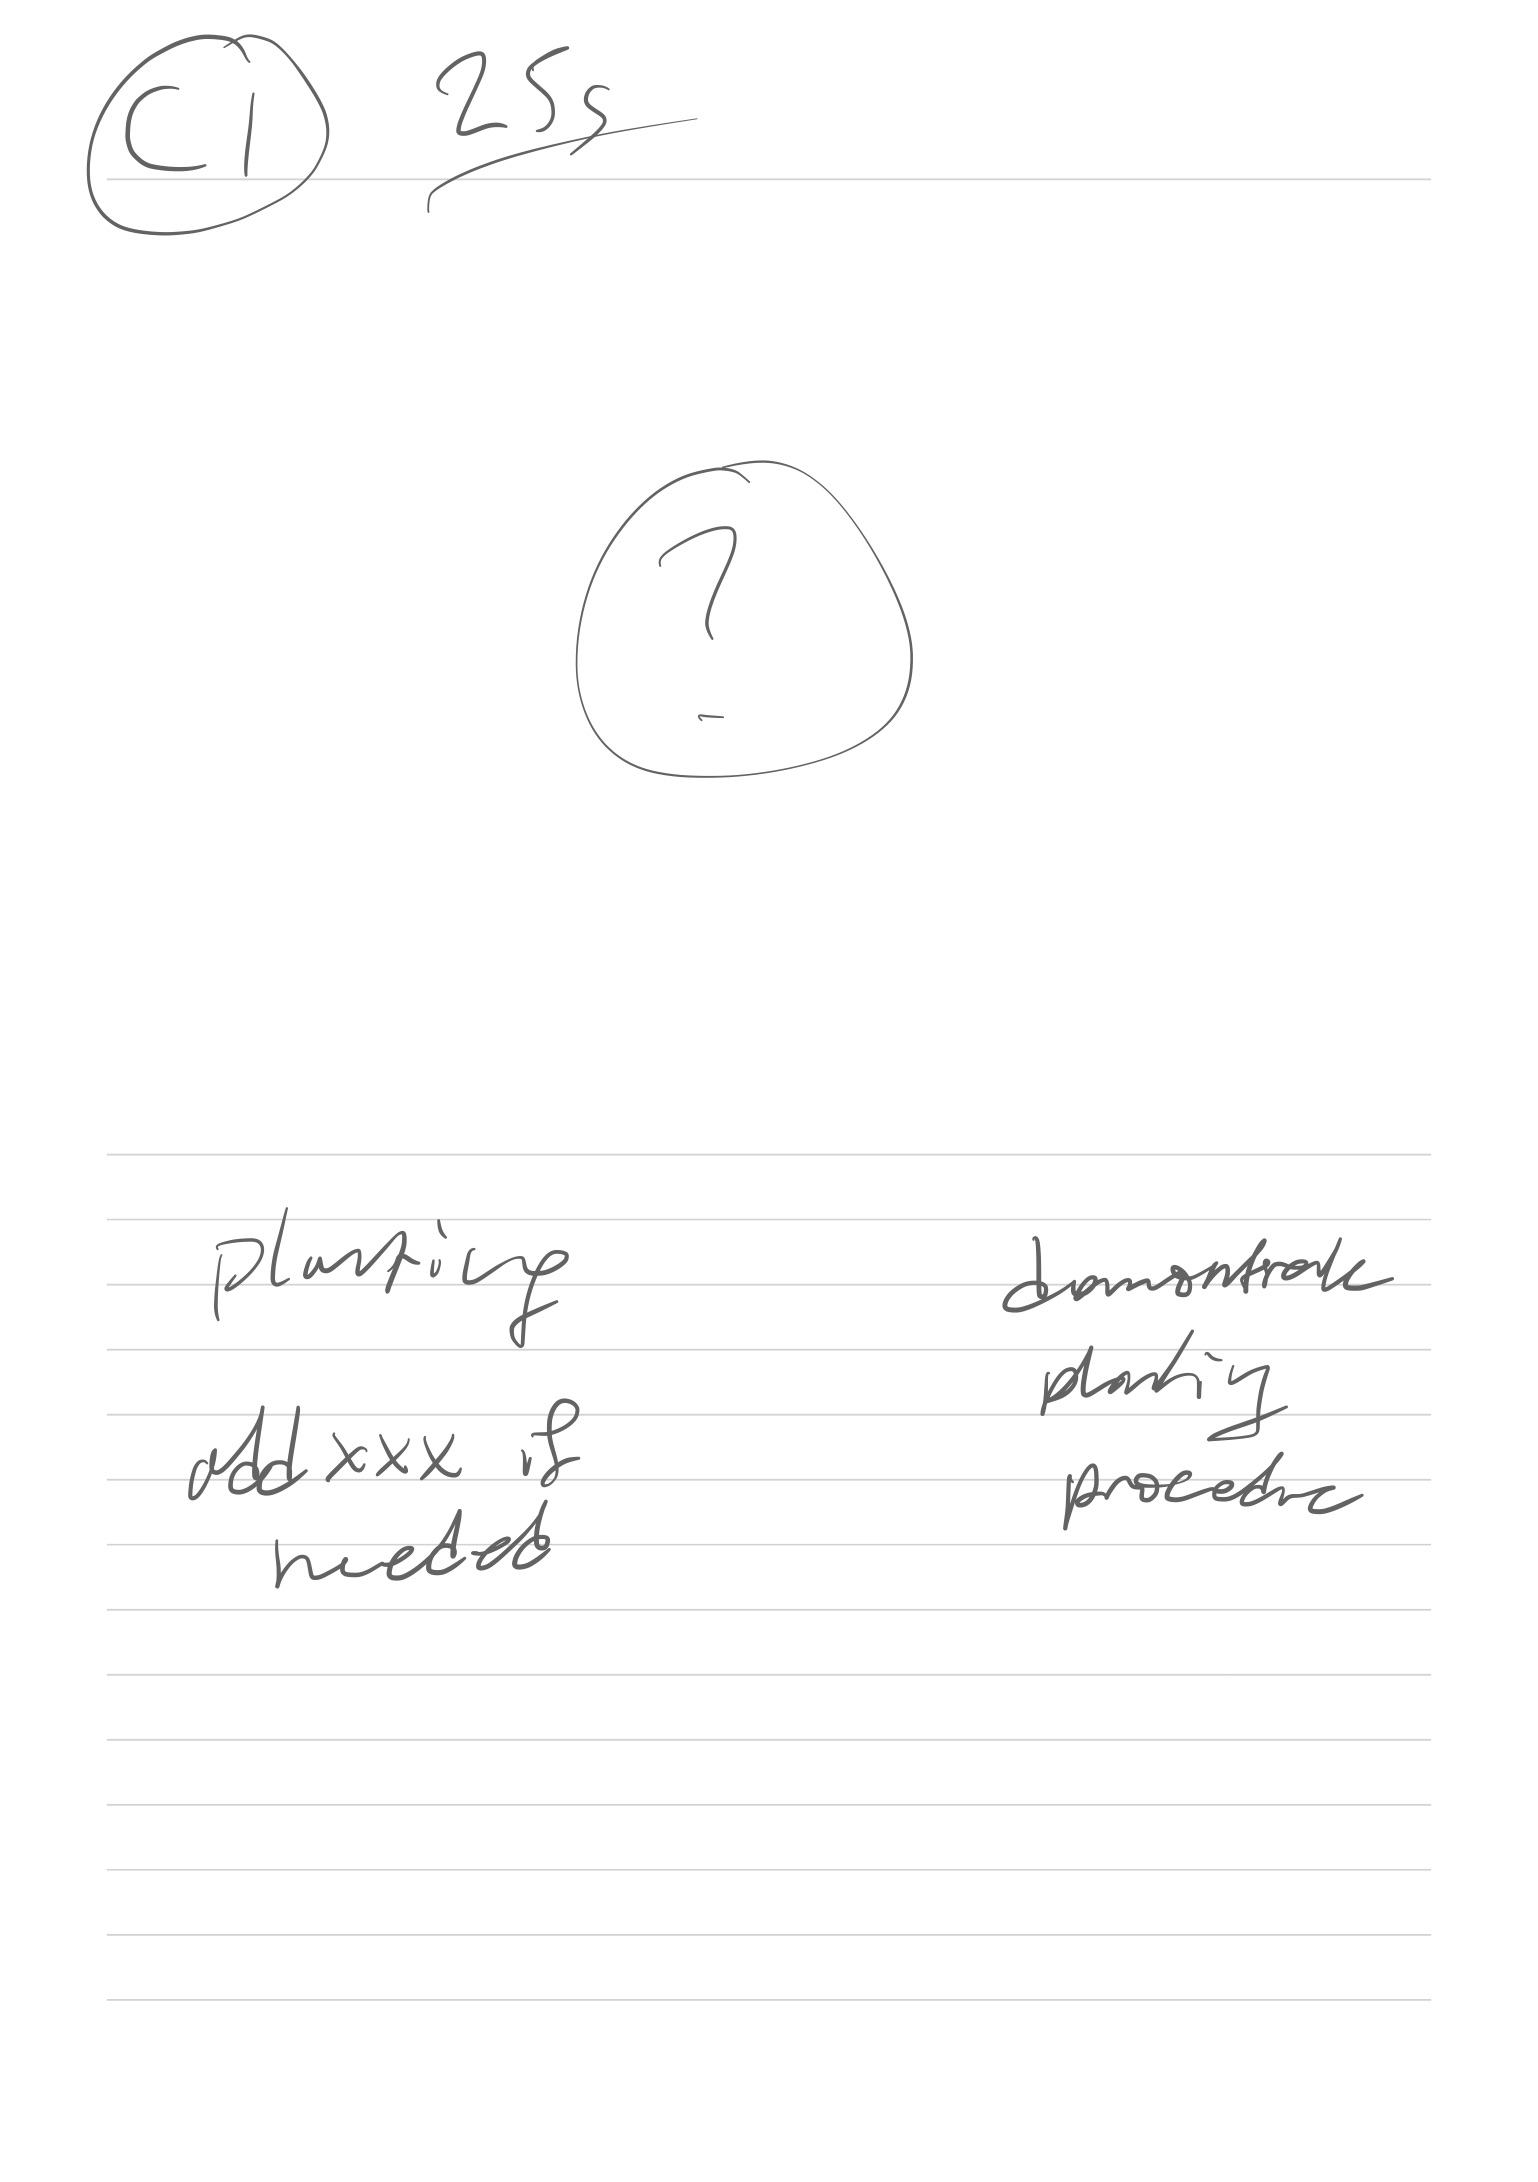 C1 25s
?
planting
add xxx if
needed
demonstrate
planting
procedure